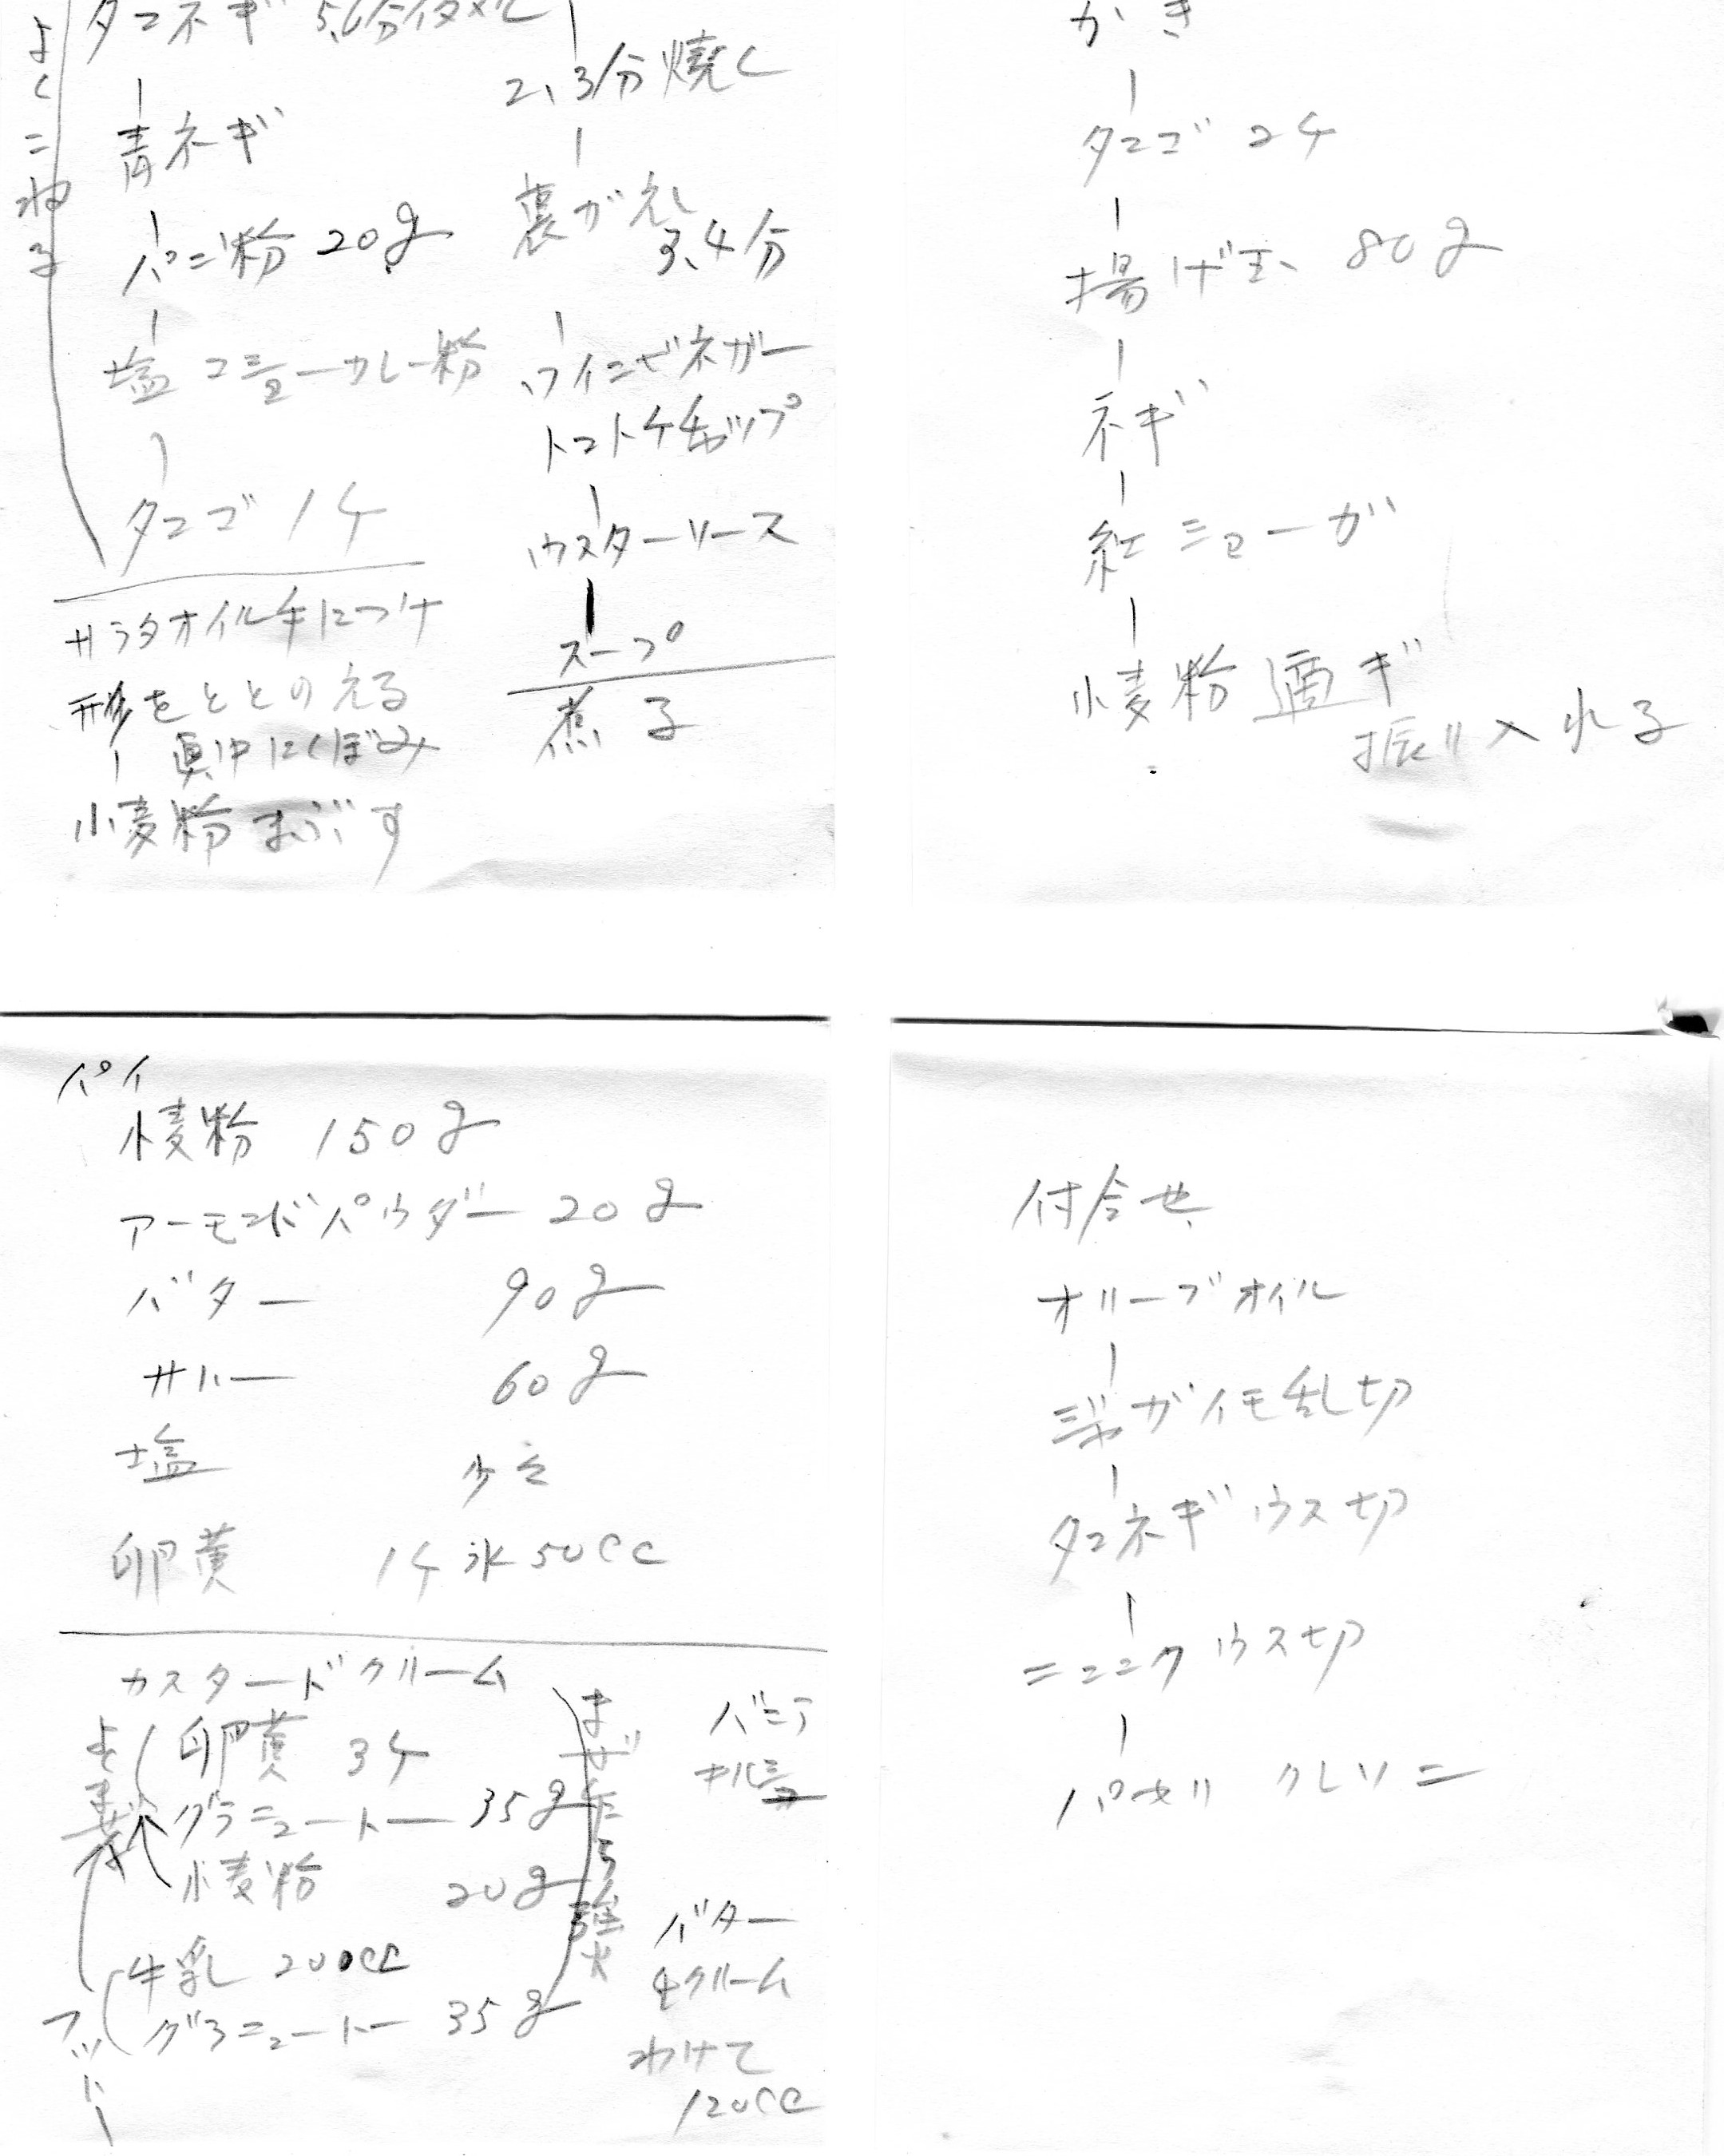 よくこねる
タマネギ 5,6分イタメル
青ネギ
パン粉 20g
塩 コショー カレー粉
タマゴ 1ケ
サラダオイル手につけ
形をととのえる
真中にくぼみ
小麦粉まぶす
2、3分焼く
裏がえし
3、4分
ワインビネガー
トマトケチャップ
ウスターソース
スープ
煮る
かき
タマゴ 2ケ
揚げ玉 80g
ネギ
紅ショーガ
小麦粉
振り入れる
パイ
小麦粉 150g
アーモンドパウダー 20g
バター 90g
サトー 60g
塩 少々
卵黄 1ケ 水50cc
カスタードクリーム
卵黄 3ケ
グラニュートー 35g
小麦粉 20g
牛乳 200cc
グラニュートー 35g
まぜたら強火
バニラ
バター
生クリーム
わけて
120cc
付合せ
オリーブオイル
ジャガイモ乱切
タマネギ ウス切
ニンニク ウス切
パセリ クレソン